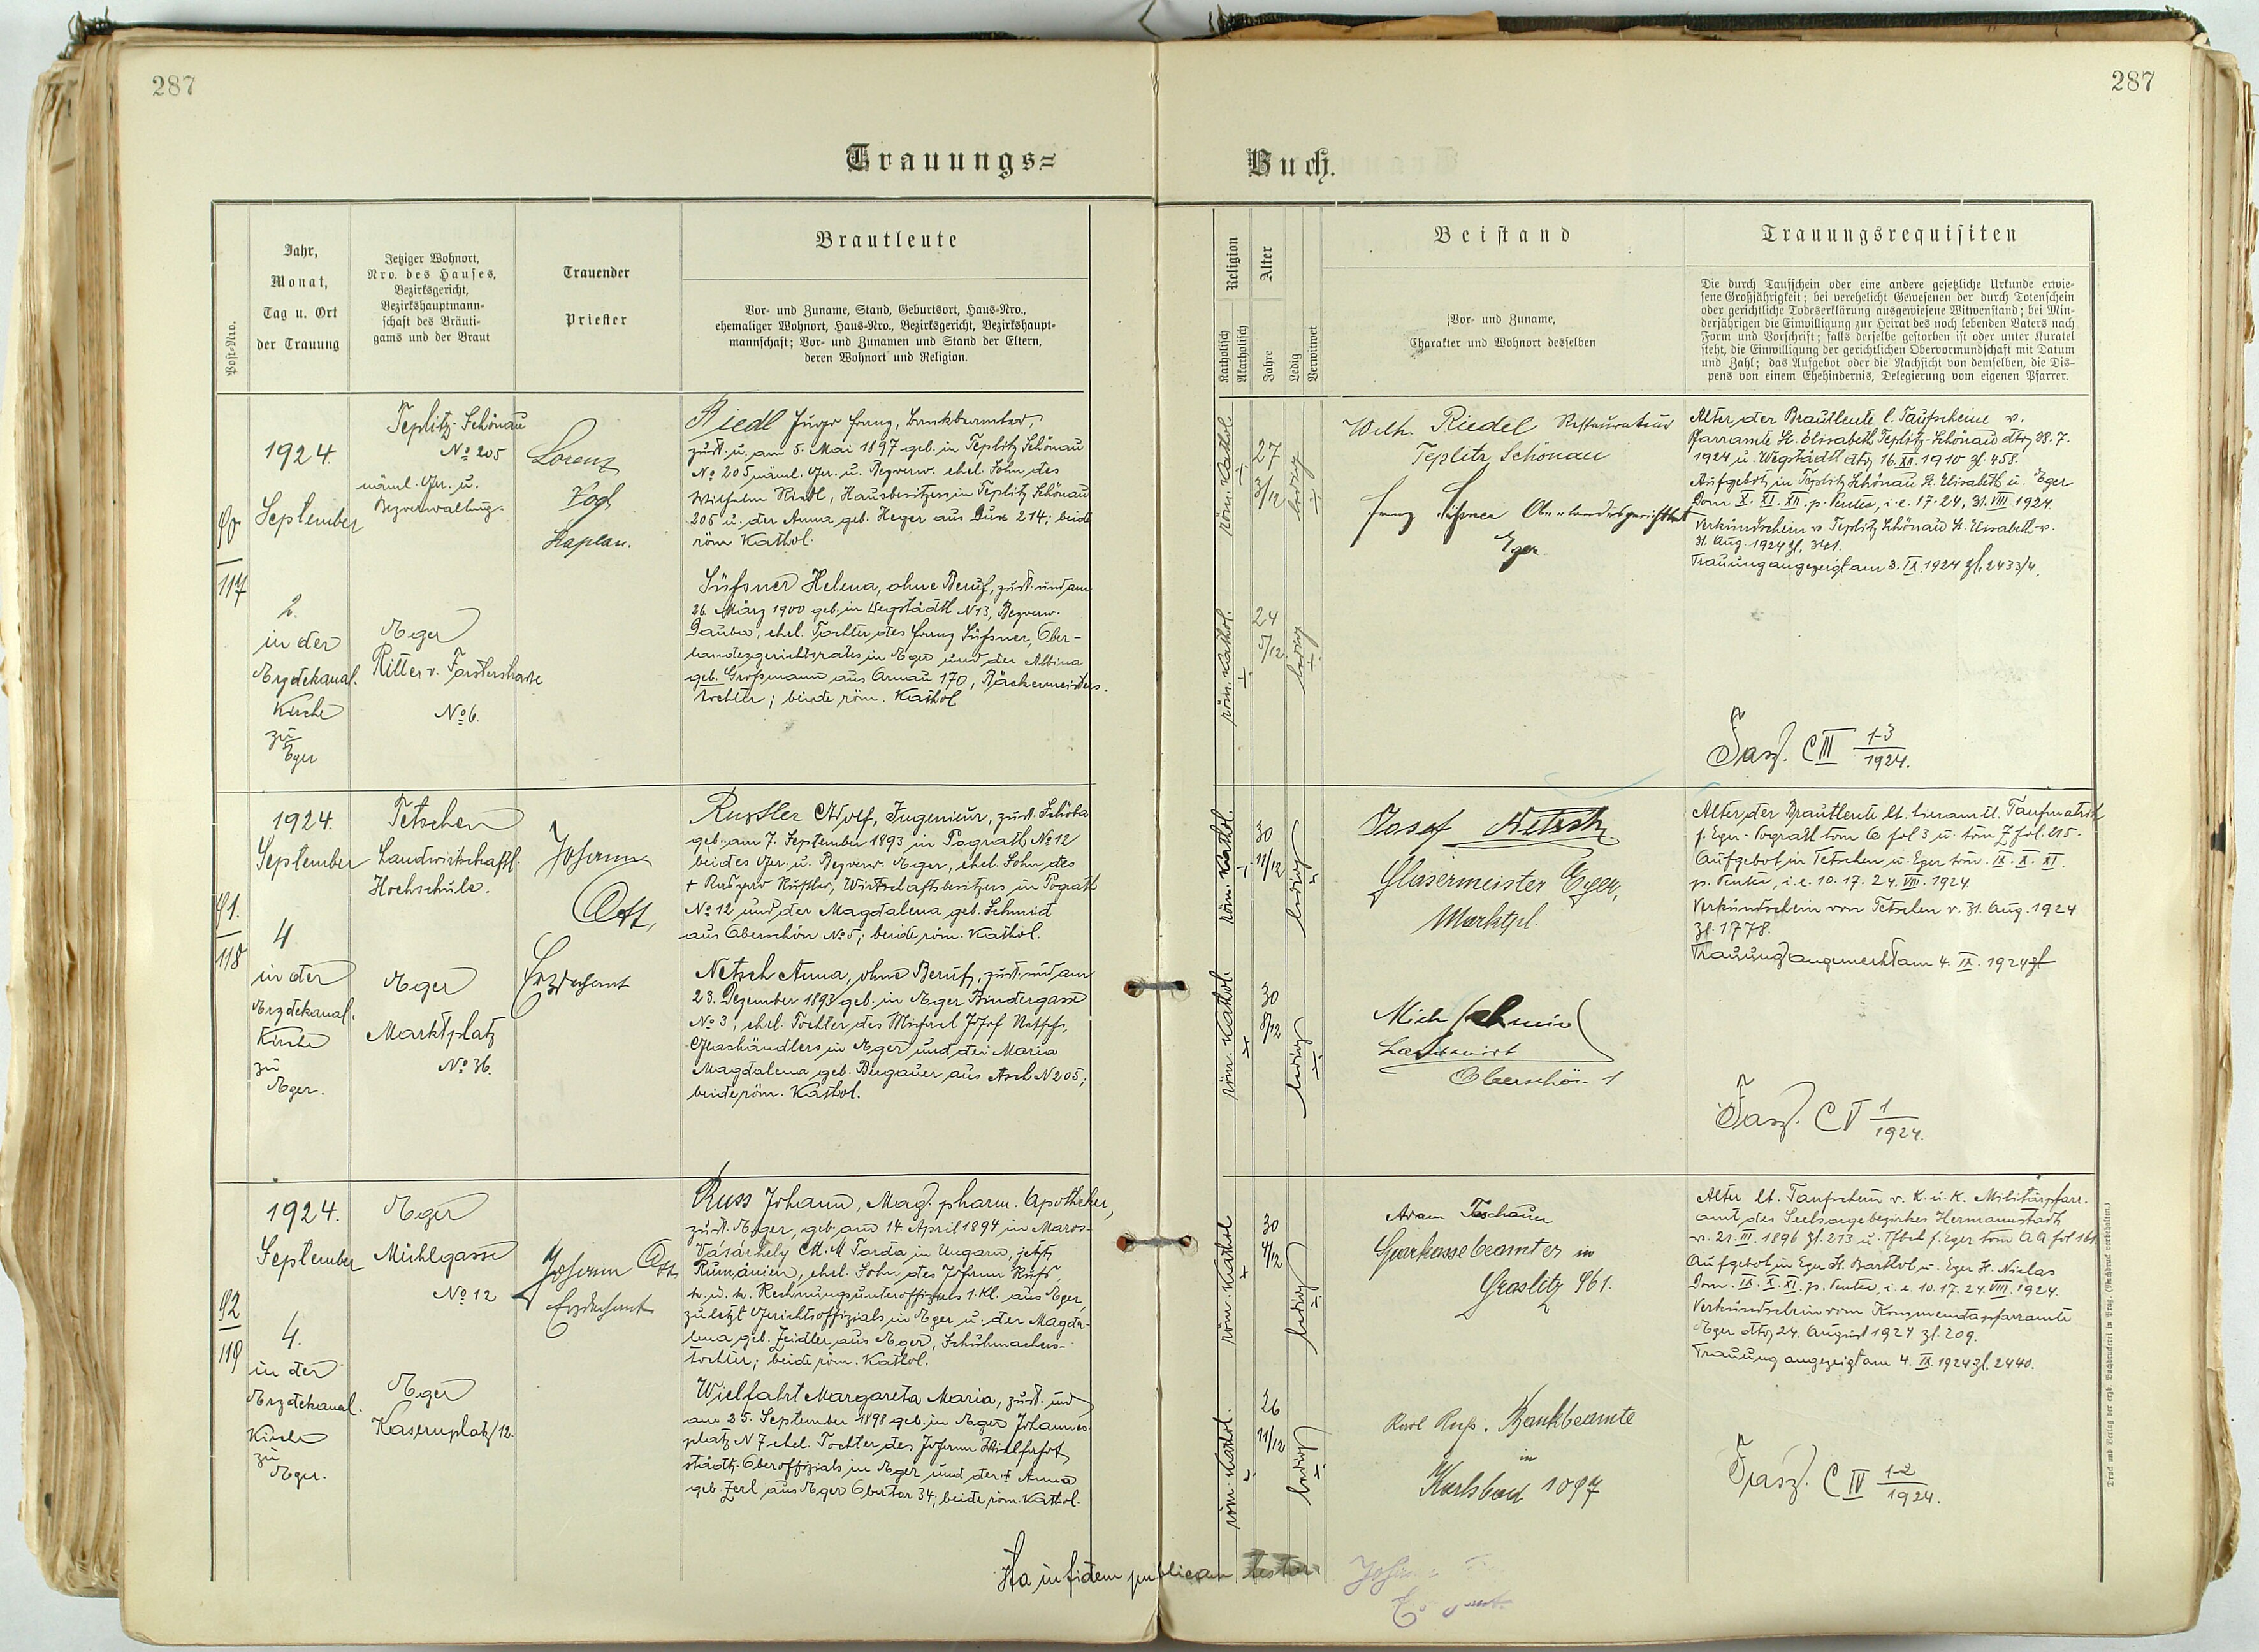 287
287
Trauungs=
Buch.
Post=Nro.
Jahr,
Monat,
Tag u. Ort
der Trauung
Jetziger Wohnort,
Nro. des Hauses,
Bezirksgericht,
Bezirkshauptmann=
schaft des Bräuti=
gams und der Braut
Trauender
Priester
Brautleute
Vor= und Zuname, Stand, Geburtsort, Haus=Nro.,
ehemaliger Wohnort, Haus=Nro., Bezirksgericht, Bezirkshaupt=
mannschaft; Vor= und Zunamen und Stand der Eltern,
deren Wohnort und Religion.
Religion
Katholisch
Akatholisch
Alter
Jahre
Ledig
Verwitwet
Beistand
Vor= und Zuname,
Charakter und Wohnort desselben
Trauungsrequisiten
Die durch Taufschein oder eine andere gesetzliche Urkunde erwie=
sene Großjährigkeit; bei verehelicht Gewesenen der durch Totenschein
oder gerichtliche Todeserklärung ausgewiesene Witwenstand; bei Min=
derjährigen die Einwilligung zur Heirat des noch lebenden Vaters nach
Form und Vorschrift; falls derselbe gestorben ist oder unter Kuratel
steht, die Einwilligung der gerichtlichen Obervormundschaft mit Datum
und Zahl; das Aufgebot oder die Nachsicht von demselben, die Dis=
pens von einem Ehehindernis, Delegierung vom eigenen Pfarrer.
90
117
1924.
September
2.
in der
Erzdekanal.
Kirche
zu
Eger
Teplitz-Schönau
No 205
näml. Ger. u.
Bezverwaltung.
Eger
Ritter v. Forsterstrasse
No 6.
Lorenz
Vogl
Kaplan.
Riedl Hugo Franz, Bankbeamter,
zust. u. am 5. Mai 1897 geb. in Teplitz Schönau
No 205 näml. Ger. u. Bezverw. ehel. Sohn des
Wilhelm Riedl, Hausbesitzers in Teplitz Schönau
205 u. der Anna geb. Heger aus Dux 214; beide
röm Kathol.
Süßner Helena, ohne Beruf, zust. und am
26. März 1900 geb. in Wegstädtl N 13, Bezverw.
Dauba, ehel. Tochter des Franz Süßner, Ober-
landesgerichtsrates in Eger und der Albina
geb. Großmann aus Arnau 170, Bäckermeisters-
tochter; beide röm. Kathol
röm. Kathol.
27
3/12
ledig
röm. Kathol.
24
5/12
ledig
Wilh. Riedel Restaurateur
Teplitz Schönau
Franz Süßner Oberlandesgerichtsrat
Eger
Alter der Brautleute l. Taufscheine v.
Pfarramte St. Elisabeth Teplitz-Schönau dto 28.7.
1924 u. Wegstädtl dto 16. XII. 1910 zl. 458.
Aufgebot in Teplitz Schönau St. Elisabeth u. Eger
Dom X. XI. XII. p. Pentec, i.e. 17. 24. 31. VIII. 1924.
Verkündschein v. Teplitz Schönau St. Elisabeth v.
31. Aug. 1924 zl. 341.
Trauung angezeigt am 3. IX. 1924 zl. 2433/4.
Fasz. C III 1-3
1924.
91.
118
1924.
September
4
in der
Erzdekanal.
Kirche
zu
Eger.
Tetschen
Landwirtschaftl.
Hochschule.
Eger
Marktplatz
No 36.
Johann
Ott,
Erzdechant
Rustler Adolf, Ingenieur, zust. Schöba
geb. am 7. September 1893 in Pograth No 12
beides Ger. u. Bezverw. Eger, ehel. Sohn des
+ Kaspar Rustler, Wirtschaftsbesitzers in Pograth
No 12 und der Magdalena geb. Schmid
aus Oberschön No 5; beide röm. Kathol.
Netsch Anna, ohne Beruf, zust. und am
23. Dezember 1893 geb. in Eger Bindergasse
No 3, ehel. Tochter des Michael Josef Netsch,
Glashändlers in Eger und der Maria
Magdalena geb. Bergauer aus Asch N 205;
beide röm. Kathol.
röm. Kathol.
30
11/12
ledig
röm. Kathol.
30
8/12
ledig
Josef Netsch
Glasermeister Eger,
Marktpl.
Mich Schmid
Landwirt
Oberschön 1
Alter der Brautleute lt. Taufmatrik
f. Eger-Pograth tom 6 fol 3 u. tom Z fol. 215.
Aufgebot in Tetschen u. Eger dom. IX. X. XI.
p. Pentec, i.e. 10. 17. 24. VIII. 1924.
Verkündschein von Tetschen v. 31. Aug. 1924
zl. 1778.
Trauung angemerkt am 4. IX. 1924 zl
Fasz. C V 1
1924.
92
119
1924.
September
4.
in der
Erzdekanal.
Kirche
zu
Eger.
Eger
Mühlgasse
No 12
Eger
Kasernplatz/12.
Johann Ott
Erzdechant
Russ Johann, Mag. pharm. Apotheker,
zust. Eger, geb. am 14. April 1894 in Maros-
Vásárhely M. Torda in Ungarn, jetzt
Rumänien, ehel. Sohn des Johann Russ,
k. u. k. Rechnungsunteroffiziers 1. Kl. aus Eger,
zuletzt Gerichtsoffizials in Eger u. der Magda-
lena geb. Zeidler aus Eger, Schuhmachers-
tochter; beide röm. Kathol.
Wielfahrt Margareta Maria, zust. und
am 25. September 1898 geb. in Eger Johannes-
platz N 7 ehel. Tochter des Johann Wielfahrt
städt. Oberoffizials in Eger und der + Anna
geb. Zerl aus Eger Obertor 34; beide röm. Kathol.
röm Kathol
30
4/12
ledig
röm. Kathol.
26
11/12
ledig
Adam Taschauer
Sparkassebeamter in
Graslitz 961.
Karl Ruß. Bankbeamte
in
Karlsbad 1097
Alter lt. Taufschein v. k. u. k. Militärpfarr-
amt des Seelsorgebezirkes Hermannstadt
v. 21. III. 1896 zl. 213 u. Tfbch f. Eger tom AA fol 161.
Aufgebot in Eger St. Barthol u. Eger St. Niclas
Dom. IX. X. XI. p. Pentec, i.e. 10. 17. 24. VIII. 1924.
Verkündschein vom Kommendapfarramte
Eger dto 24. August 1924 zl. 209.
Trauung angezeigt am 4. IX. 1924 zl. 2440.
Fasz. C IV 1-2
1924.
Ita in fidem publicam testor
Druck und Verlag der erzb. Buchdruckerei in Prag. (Nachdruck vorbehalten.)